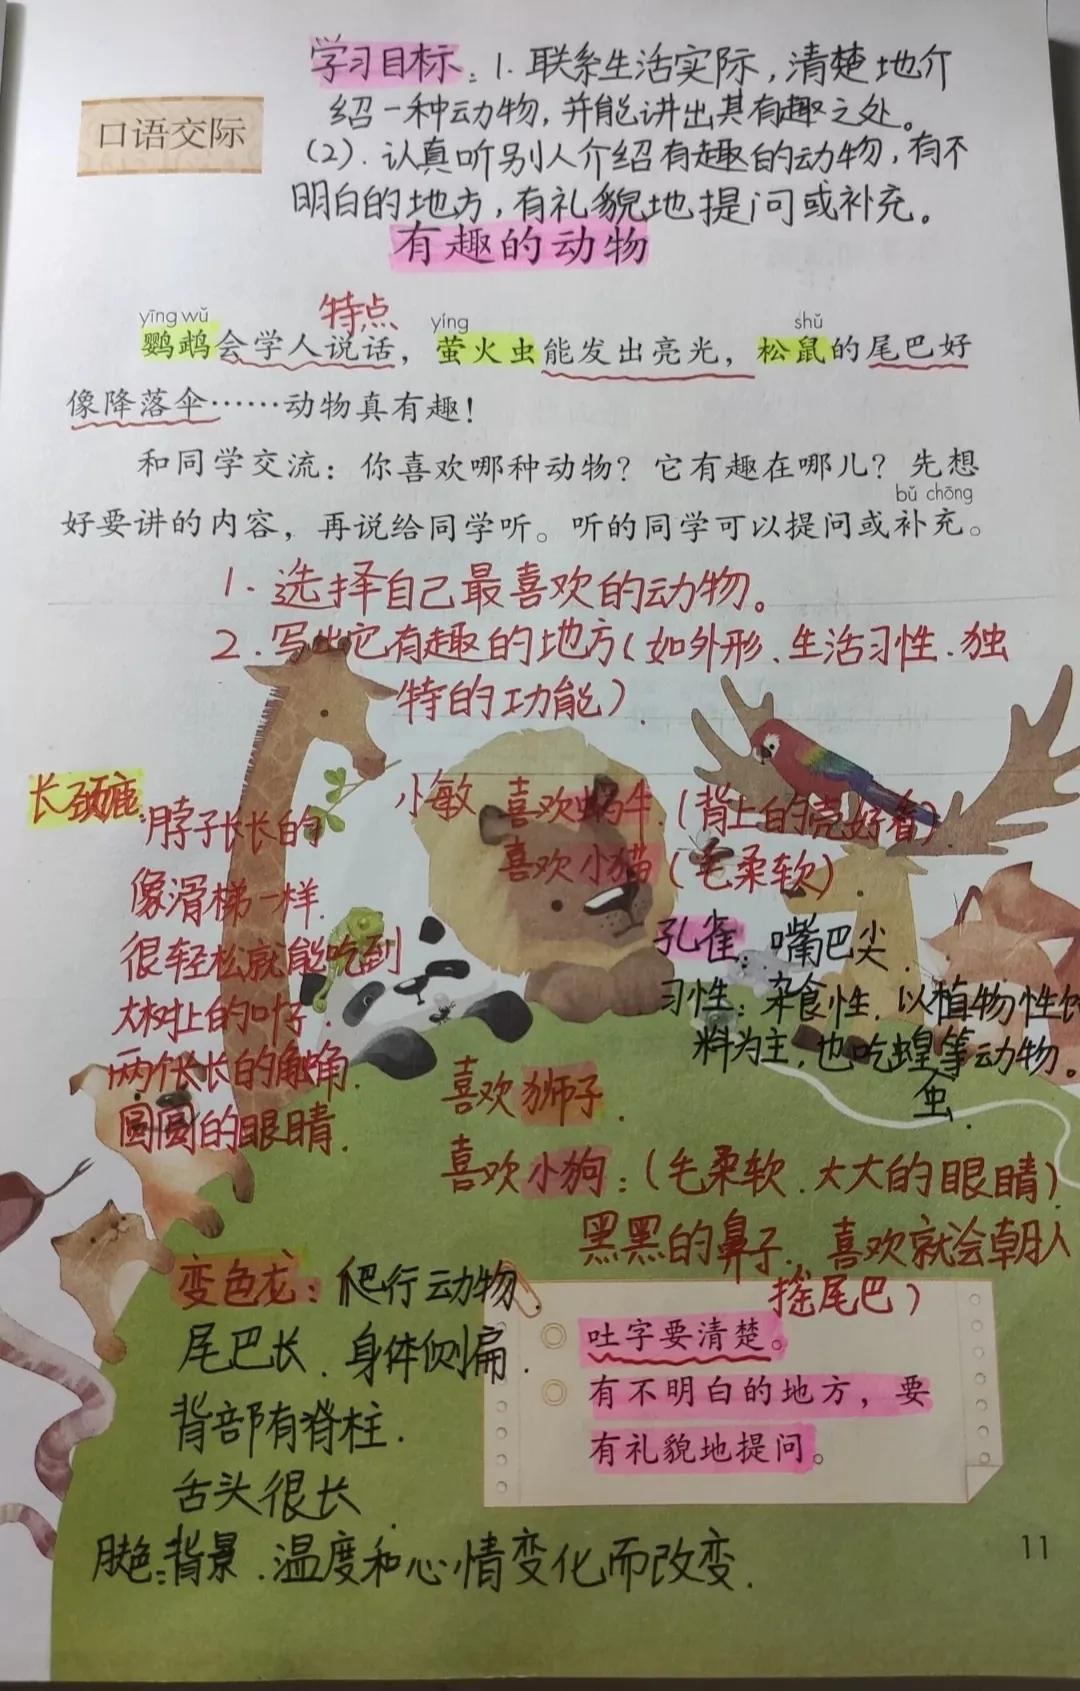 学习目标：1.联系生活实际，清楚地介
绍一种动物，并能讲出其有趣之处。
口语交际
(2).认真听别人介绍有趣的动物，有不
明白的地方，有礼貌地提问或补充。
有趣的动物
特点
yīng wǔ yíng shǔ
鹦鹉会学人说话，萤火虫能发出亮光，松鼠的尾巴好
像降落伞……动物真有趣！
和同学交流：你喜欢哪种动物？它有趣在哪儿？先想
bǔ chōng
好要讲的内容，再说给同学听。听的同学可以提问或补充。
1.选择自己最喜欢的动物。
2.写出它有趣的地方(如外形、生活习性.独
特的功能).
长颈鹿:脖子长长的
像滑梯一样.
很轻松就能吃到
大树上的叶子.
两个长长的触角.
圆圆的眼睛.
小敏 喜欢蜗牛.(背上的壳好看)
喜欢小猫(毛柔软)
孔雀:嘴巴尖.
习性:杂食性.以植物性饲
料为主,也吃蝗等动物。
虫.
喜欢狮子.
喜欢小狗:(毛柔软.大大的眼睛)
黑黑的鼻子、喜欢就会朝人
摇尾巴)
变色龙:爬行动物.
尾巴长.身体侧扁.
背部有脊柱.
舌头很长.
肤色:背景.温度和心情变化而改变.
吐字要清楚。
有不明白的地方，要
有礼貌地提问。
11